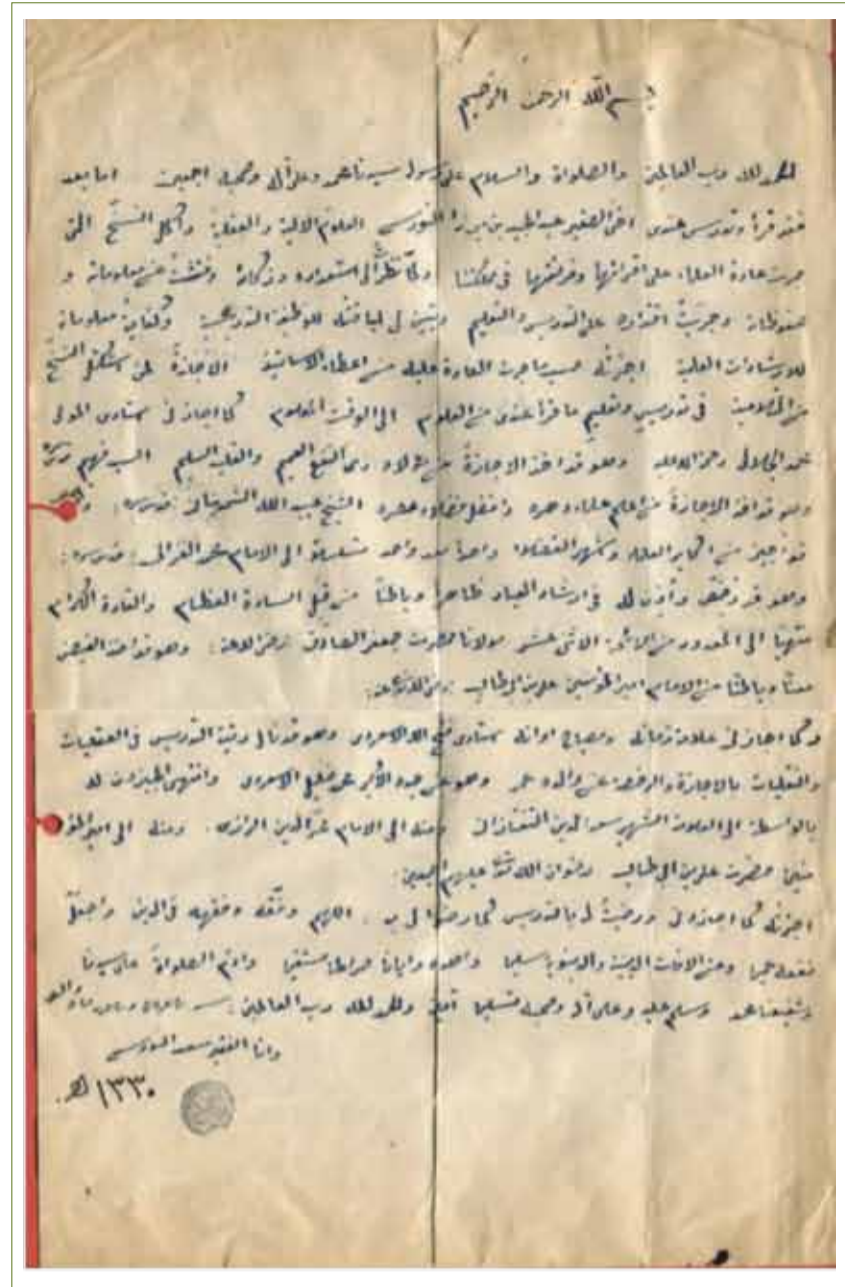 بسم الله الرحمن الرحيم
الحمد لله رب العالمين والصلوات والسلام على رسوله سيدنا محمد وعلى آله وصحبه اجمعين اما بعد
فقد قرأ وتدرس عندى اخى الصغير عبد المجيد بن ميرزا النورسى العلوم الآلية والعقلية وأكمل النسخ التى
جرت عادة العلماء على اقرائها وقرائتها فى مملكتنا ولمّا نظرتُ الى استعداده وذكائه وفتشتُ عن معلوماته و
محفوظاته وجربتُ اقتداره على التدريس والتعليم وتبين لى لياقته للوظيفة التدريسية وكفاية معلوماته
للارشادات العلمية اجزتُه حسب ما جرت العادة عليه من اعطاء الاساتيذ الاجازةَ لمن يستكمل النسخَ
من التلاميذ فى تدريس وتعليم ما قرأ عندى من العلوم الى الوقت المعلوم كما اجازنى استاذى المولى
محمد الجلالى رحمه الله وهو قد اخذ الاجازةَ من والقلب السليم السيد فهيم
وهو قد اخذ الاجازةَ من اعلم علماء دهره وافضل فضلاء عصره الشيخ عبيد الله الشمزينانى قدس سره
قد اجيز من اكابر العلماء وشهير الفضلاء واحداً بعد واحد متسلسلة الى الامام محمد الغزالى قدس سره
وهو قد رُخّص وأُذِن له فى ارشاد العباد ظاهراً وباطناً من قبل السادة العظام والقادة الكرام
منتهيًا الى المعدود من الائمة الاثنى عشر مولانا حضرت جعفر الصادق رضى الله عنه وهو قد اخذ الفيض
وباطنًا من الامام امير المؤمنين على بن ابى طالب رضى الله عنه
وكما اجازنى علامة زمانه ومصباح اوانه استاذى فتح الله الاسعردى وهو قد نال رتبة التدريس فى العقليات
والنقليات بالاجازة والرخصة عن والده عمر وهو عن جده الأكبر الاسعردى وانتهى المجيزون له
بالواسطة الى العلامة الشهير سعد الدين التفتازانى ومنه الى الامام فخر الدين الرازى ومنه الى امير المؤ
منين حضرت على بن ابى طالب رضوان الله عليهم اجمعين
اجزتُه كما اجازونى ورضيتُ له بالتدريس كما رضوا لى به اللهم وفّقه وفقهه فى الدين واجعلْ
وعن الآفات الدينية والدنيوية سليما واهده وايانا صراطا مستقيما وادم الصلواةَ على سيدنا
وشفيعنا محمد وسلم عليه وعلى آله وصحبه تسليما آمين والحمد لله رب العالمين
وانا الفقير سعيد النورسى
١٣٣٠